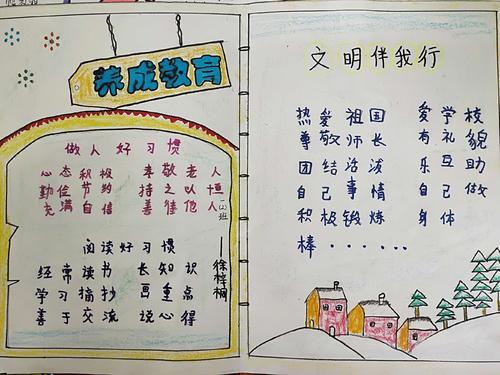 养成教育
做人好习惯
心态积极 孝敬老人
勤俭节约 持之以恒
充满自信 善待他人
阅读好习惯
经常读书 长知识
学习摘抄 画重点
善于交流 说心得
班
徐梓桐
文明伴我行
热爱祖国 爱学校
尊敬师长 有礼貌
团结活泼 乐互助
自己事情 自己做
积极锻炼 身体
棒······